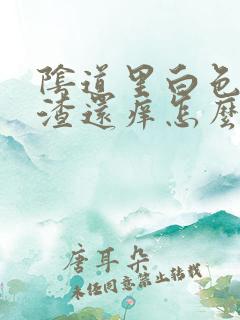 陰道里白色
渣還痒怎麼
唐耳朵
未经同意禁止转载